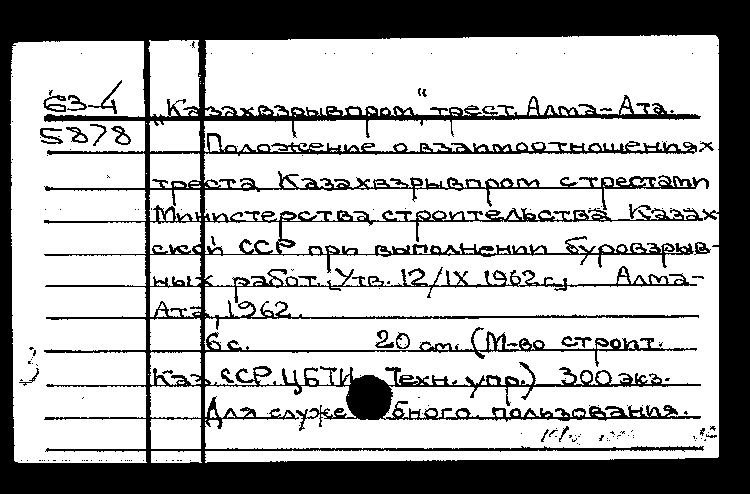 63-4
5878
„Казахвзрывпром“, трест. Алма-Ата.
Положение о взаимоотношениях
треста Казахвзрывпром с трестами
Министерства строительства Казах-
ской ССР при выполнении буровзрыв-
ных работ. [Утв. 12/IX 1962 г.] Алма-
Ата, 1962.
6 с. 20 см. (М-во строит.
Каз. ССР. ЦБТИ Техн. упр.) 300 экз.
Для служебного пользования.
3